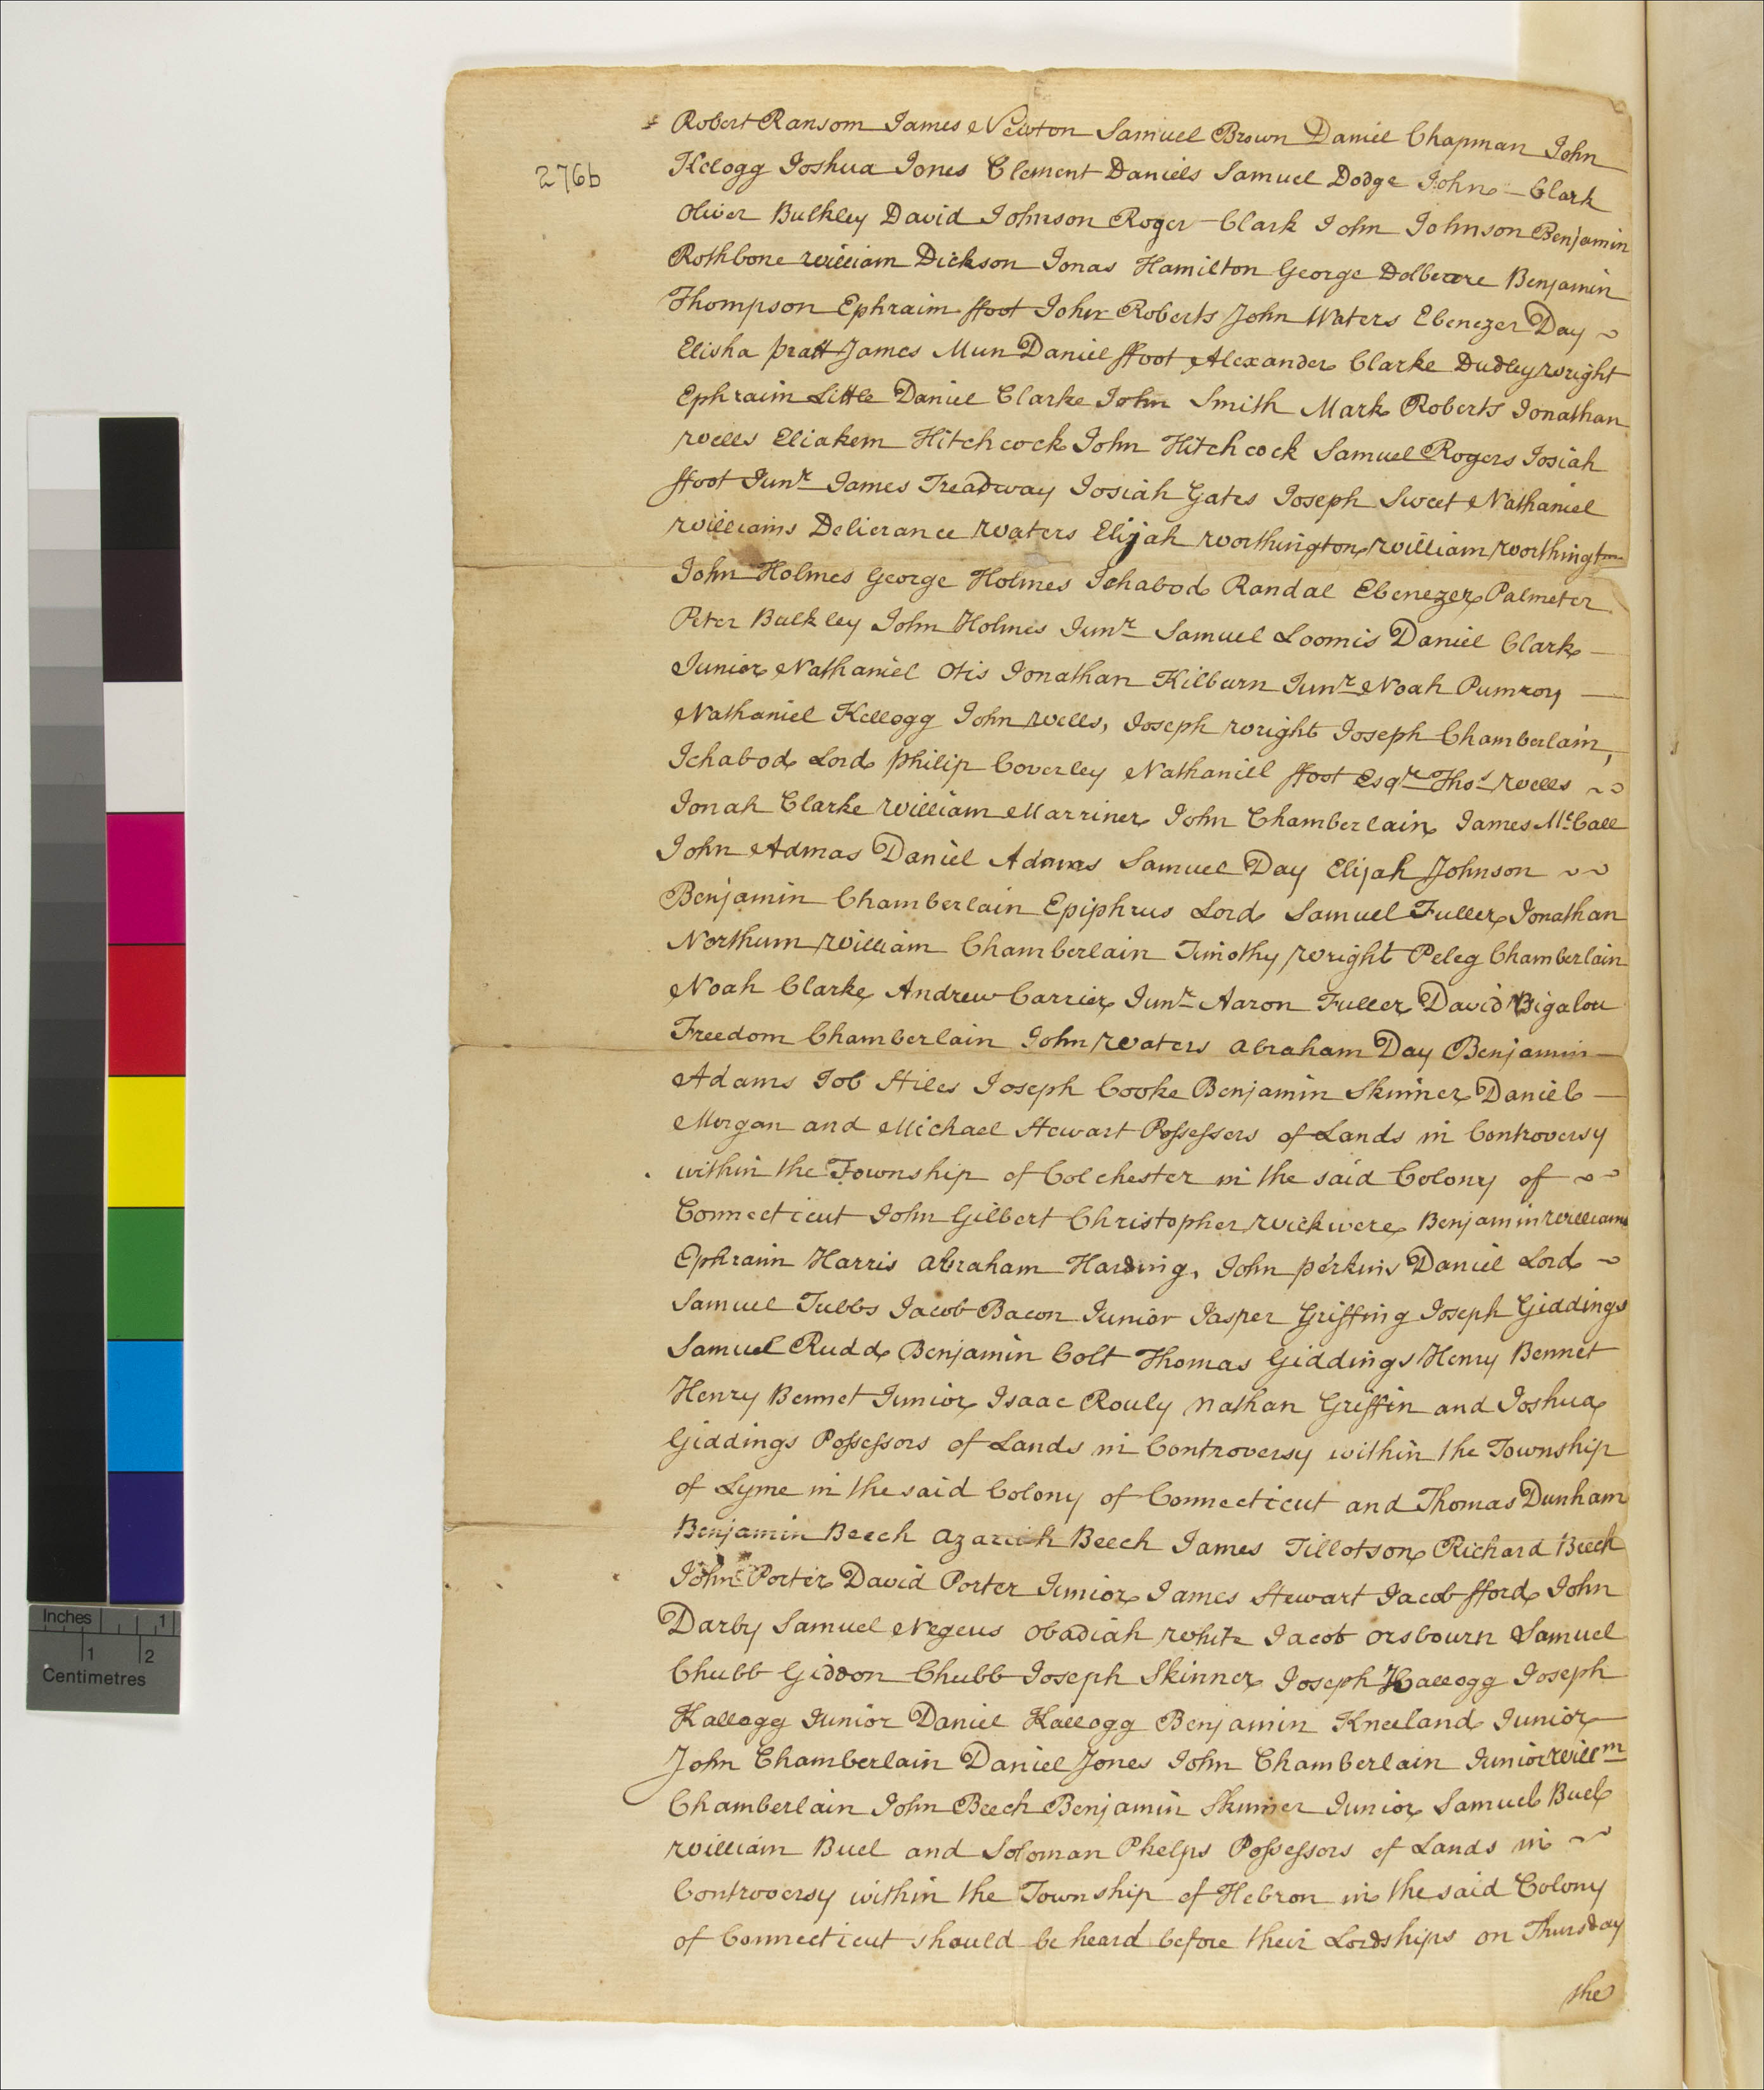 Robert Ransom James Newton Samuel Brown Daniel Chapman John
276b
Kelogg Joshua Jones Clement Daniels Samuel Dodge John Clark
Oliver Bulkley David Johnson Roger Clark John Johnson Benjamin
Rothbone William Dickson Jonas Hamilton George Dolbeare Benjamin
Thompson Ephraim ffoot John Roberts John Waters Ebenezer Day
Elisha pratt James Mun Daniel ffoot Alexander Clarke Dudley wright
Ephraim Little Daniel Clarke John Smith Mark Roberts Jonathan
wells Eliakem Hitchcock John Hitchcock Samuel Rogers Josiah
ffoot Junr James Treadway Josiah Gates Joseph Sweet Nathaniel
williams Delierance waters Elijah worthington william worthington
John Holmes George Holmes Ichabod Randal Ebenezer Palmeter
Peter Bulkley John Holmes Junr Samuel Loomis Daniel Clark
Junior Nathaniel Otis Jonathan Kilburn Junr Noah Pumroy
Nathaniel Kellogg John wells, Joseph wright Joseph Chamberlain,
Ichabod Lord philip Coverley Nathaniel ffoot Esqr Thos wells
Jonah Clarke william Marriner John Chamberlain James McCall
John Admas Daniel Adams Samuel Day Elijah Johnson
Benjamin Chamberlain Epiphrus Lord Samuel Fuller Jonathan
Northum william Chamberlain Timothy wright Peleg Chamberlain
Noah Clarke Andrew Carrier Junr Aaron Fuller David Bigalou
Freedom Chamberlain John waters Abraham Day Benjamin
Adams Job Stiles Joseph Cooke Benjamin Skinner Daniel
Morgan and Michael Stewart Possessors of Lands in Controversy
within the Township of Colchester in the said Colony of
Connecticut John Gilbert Christopher wickwere Benjamin williams
Ephraim Harris Abraham Harding, John perkins Daniel Lord
Samuel Tubbs Jacob Bacon Junior Jasper Griffing Joseph Giddings
Samuel Rudd Benjamin Colt Thomas Giddings Henry Bennet
Henry Bennet Junior Isaac Rouly Nathan Griffin and Joshua
Giddings Possessors of Lands in Controversy within the Township
of Lyme in the said Colony of Connecticut and Thomas Dunham
Benjamin Beech Azariah Beech James Tillotson Richard Beech
John Porter David Porter Junior James Stewart Jacob fford John
Darby Samuel Negeus Obadiah white Jacob Orsbourn Samuel
Chubb Gideon Chubb Joseph Skinner Joseph Kallogg Joseph
Kallogg Junior Daniel Kallogg Benjamin Kneeland Junior
John Chamberlain Daniel Jones John Chamberlain Junior Willm
Chamberlain John Beech Benjamin Skinner Junior Samuel Buel
william Buel and Soloman Phelps Possessors of Lands in
Controversy within the Township of Hebron in the said Colony
of Connecticut should be heard before their Lordships on Thursday
the
Inches 1
1 2
Centimetres